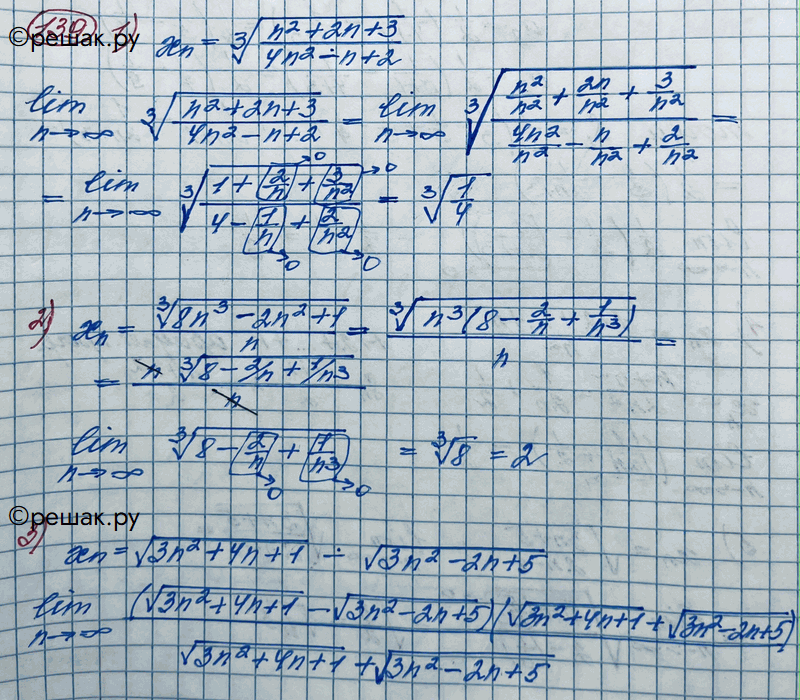 ©решак.ру
139 1) xₙ = ∛((n² + 2n + 3)/(4n² − n + 2))
lim n→∞ ∛((n² + 2n + 3)/(4n² − n + 2)) = lim n→∞ ∛((n²/n² + 2n/n² + 3/n²)/(4n²/n² − n/n² + 2/n²)) =
= lim n→∞ ∛((1 + 2/n →0 + 3/n² →0)/(4 − 1/n →0 + 2/n² →0)) = ∛(1/4)
2) xₙ = ∛(8n³ − 2n² + 1)/n = ∛(n³(8 − 2/n + 1/n³))/n =
= n ∛(8 − 2/n + 1/n³)/n
lim n→∞ ∛(8 − 2/n →0 + 1/n³ →0) = ∛8 = 2
©решак.ру
3) xₙ = √(3n² + 4n + 1) − √(3n² − 2n + 5)
lim n→∞ (√(3n² + 4n + 1) − √(3n² − 2n + 5))(√(3n² + 4n + 1) + √(3n² − 2n + 5))
√(3n² + 4n + 1) + √(3n² − 2n + 5)